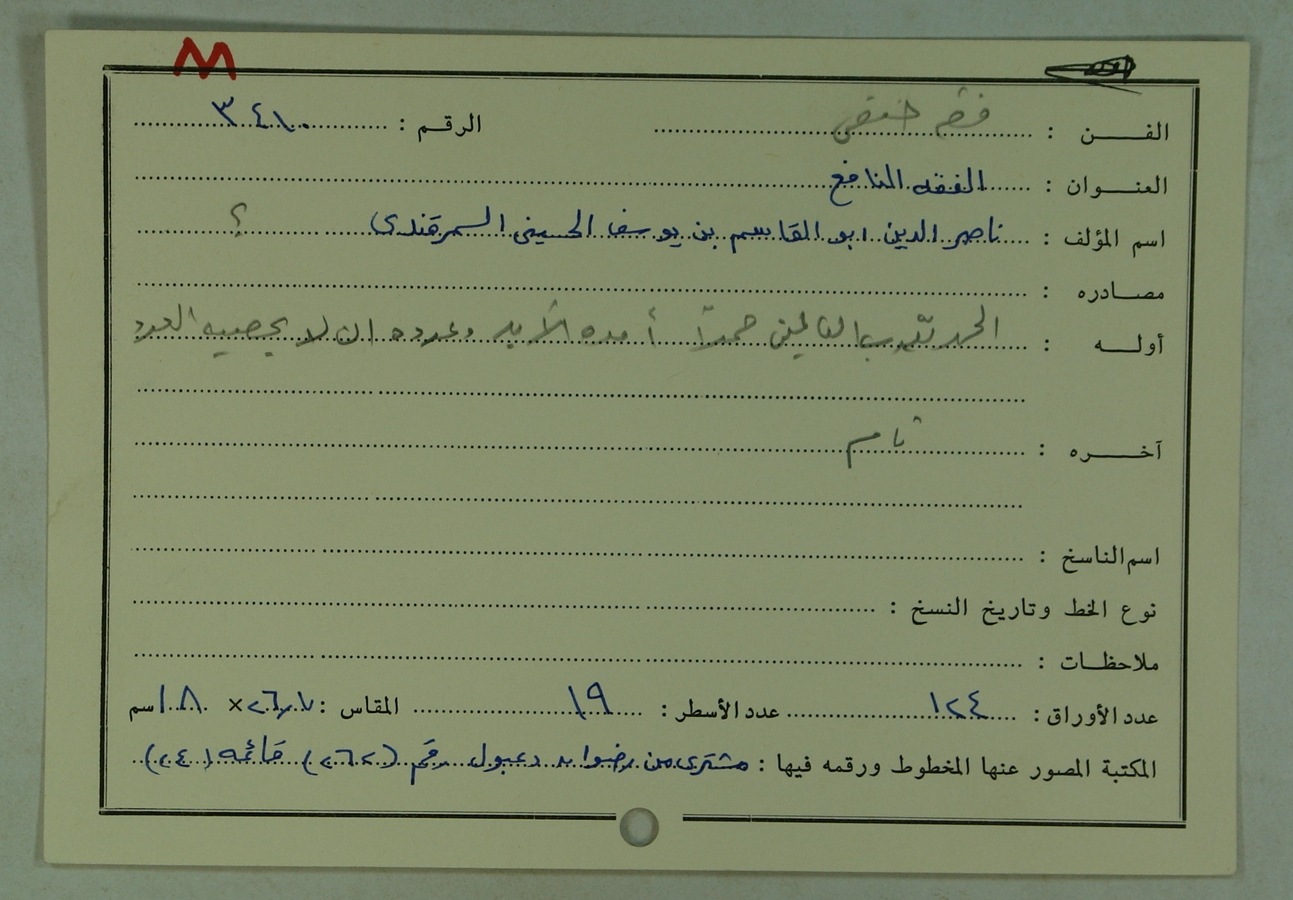 M
الفن : فقه حنفي الرقم : ٣٤٨٠
العنوان : الفقه النافع
اسم المؤلف : ناصر الدين ابو القاسم بن يوسف الحسيني السمرقندي ؟
مصادره :
أوله : الحمد لله رب العالمين حمداً أمده الأبد وعدده ان لا يحصيه العدد
آخره : تام
اسم الناسخ :
نوع الخط وتاريخ النسخ :
ملاحظات :
عدد الأوراق : ١٢٤ عدد الأسطر : ١٩ المقاس : ٢٦,٧ × ١٨ سم
المكتبة المصور عنها المخطوط ورقمه فيها : مشترى من رضوان دعبول رقم (٢٦٢) قائمة (٢٤)